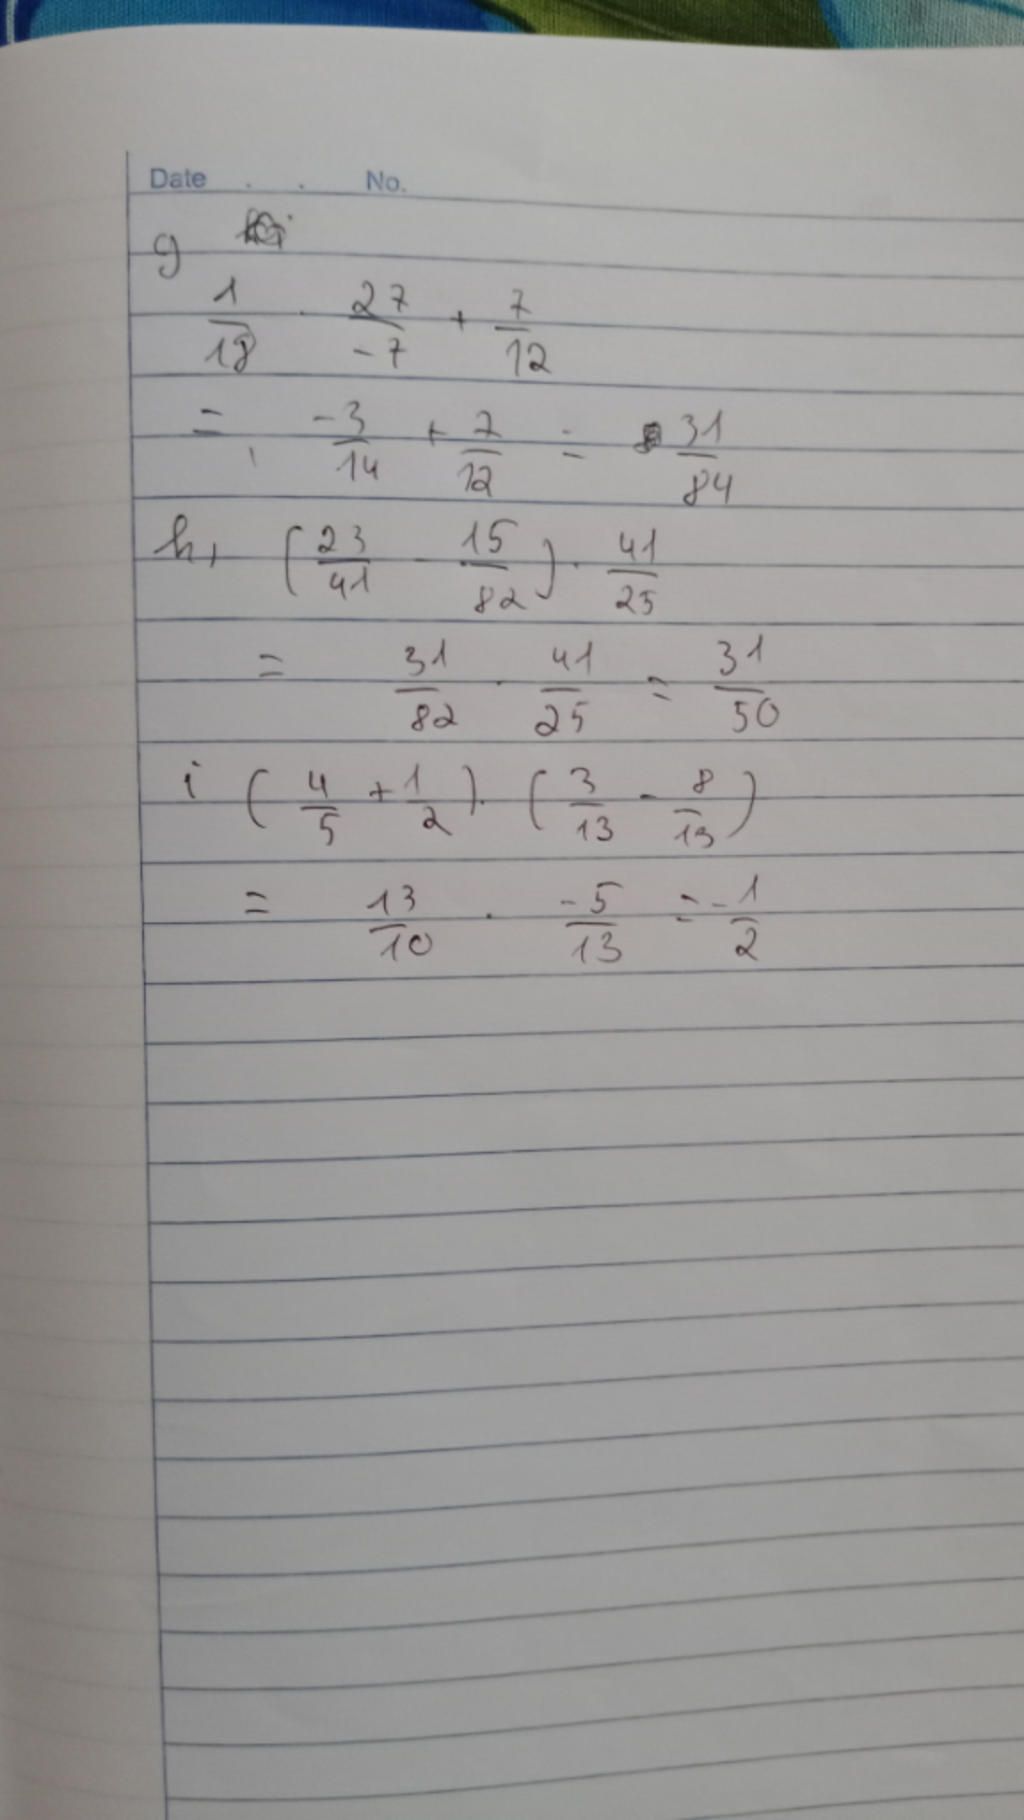 Date . . No.
g
1/18 . 27/-7 + 7/12
= -3/14 + 7/12 = 31/84
h, (23/41 - 15/82) . 41/25
= 31/82 . 41/25 = 31/50
i (4/5 + 1/2) . (3/13 - 8/13)
= 13/10 . -5/13 = -1/2